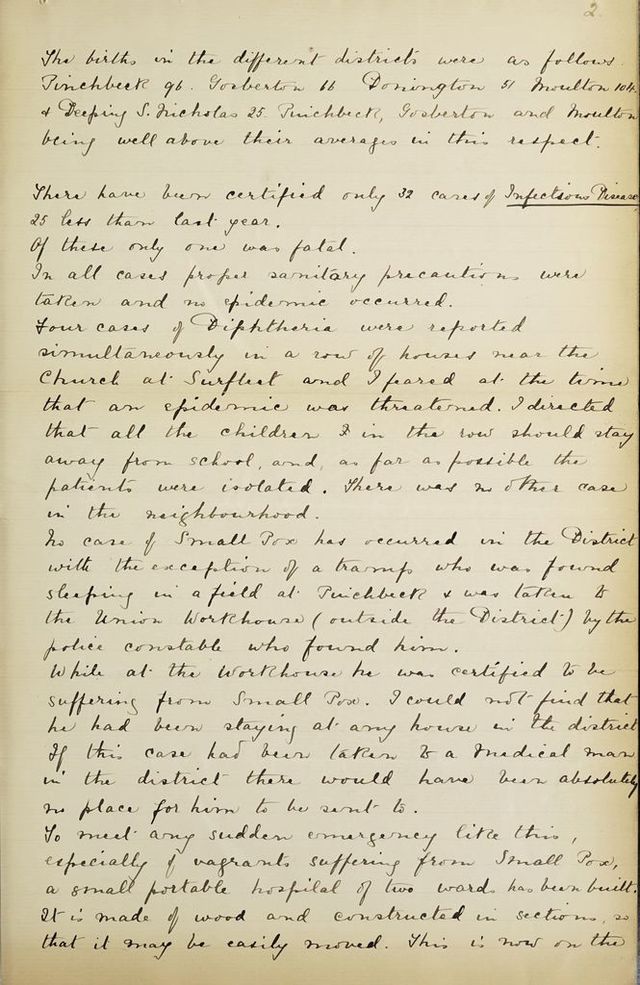 2.
The births in the different districts were as follows.
Pinchbeck 96. Gosberton 66 Donington 51 Moulton 104
& Deeping S. Nicholas 25. Pinchbeck, Gosberton and Moulton
being well above their averages in this respect.
There have been certified only 32 cases of Infectious Disease
25 less than last year.
Of these only one was fatal.
In all cases proper sanitary precautions were
taken and no epidemic occurred.
Four cases of Diphtheria were reported
simultaneously in a row of houses near the
Church at Surfleet and I feared at the time
that an epidemic was threatened. I directed
that all the children in the row should stay
away from school, and, as far as possible the
patients were isolated. There was no other case
in the neighbourhood.
No case of Small Pox has occurred in the District
with the exception of a tramp who was found
sleeping in a field at Pinchbeck & was taken to
the Union Workhouse (outside the District) by the
police constable who found him.
While at the Workhouse he was certified to be
suffering from Small Pox. I could not find that
he had been staying at any house in the district
If this case had been taken to a Medical man
in the district there would have been absolutely
no place for him to be sent to.
To meet any sudden emergency like this,
especially of vagrants suffering from Small Pox,
a small portable hospital of two wards has been built.
It is made of wood and constructed in sections, so
that it may be easily moved. This is now on the